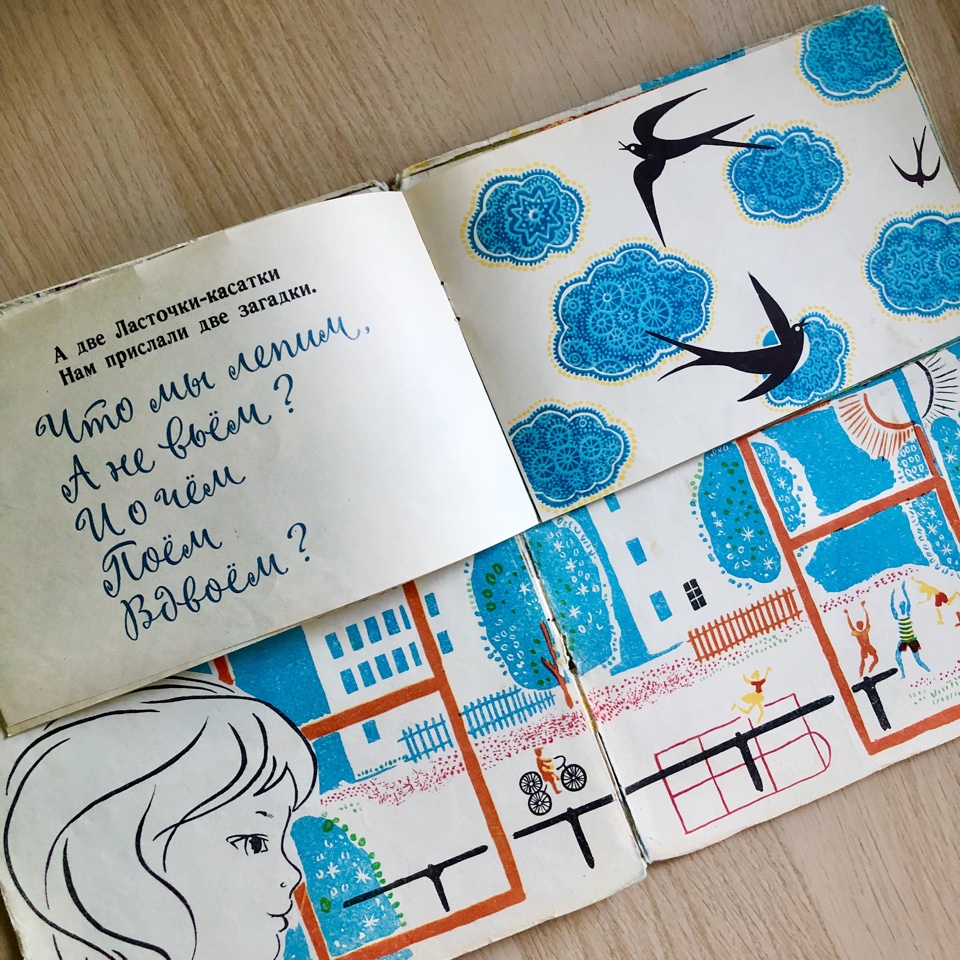 А две Ласточки-касатки
Нам прислали две загадки.
Что мы лепим,
А не вьём?
И о чём
Поём
Вдвоём?